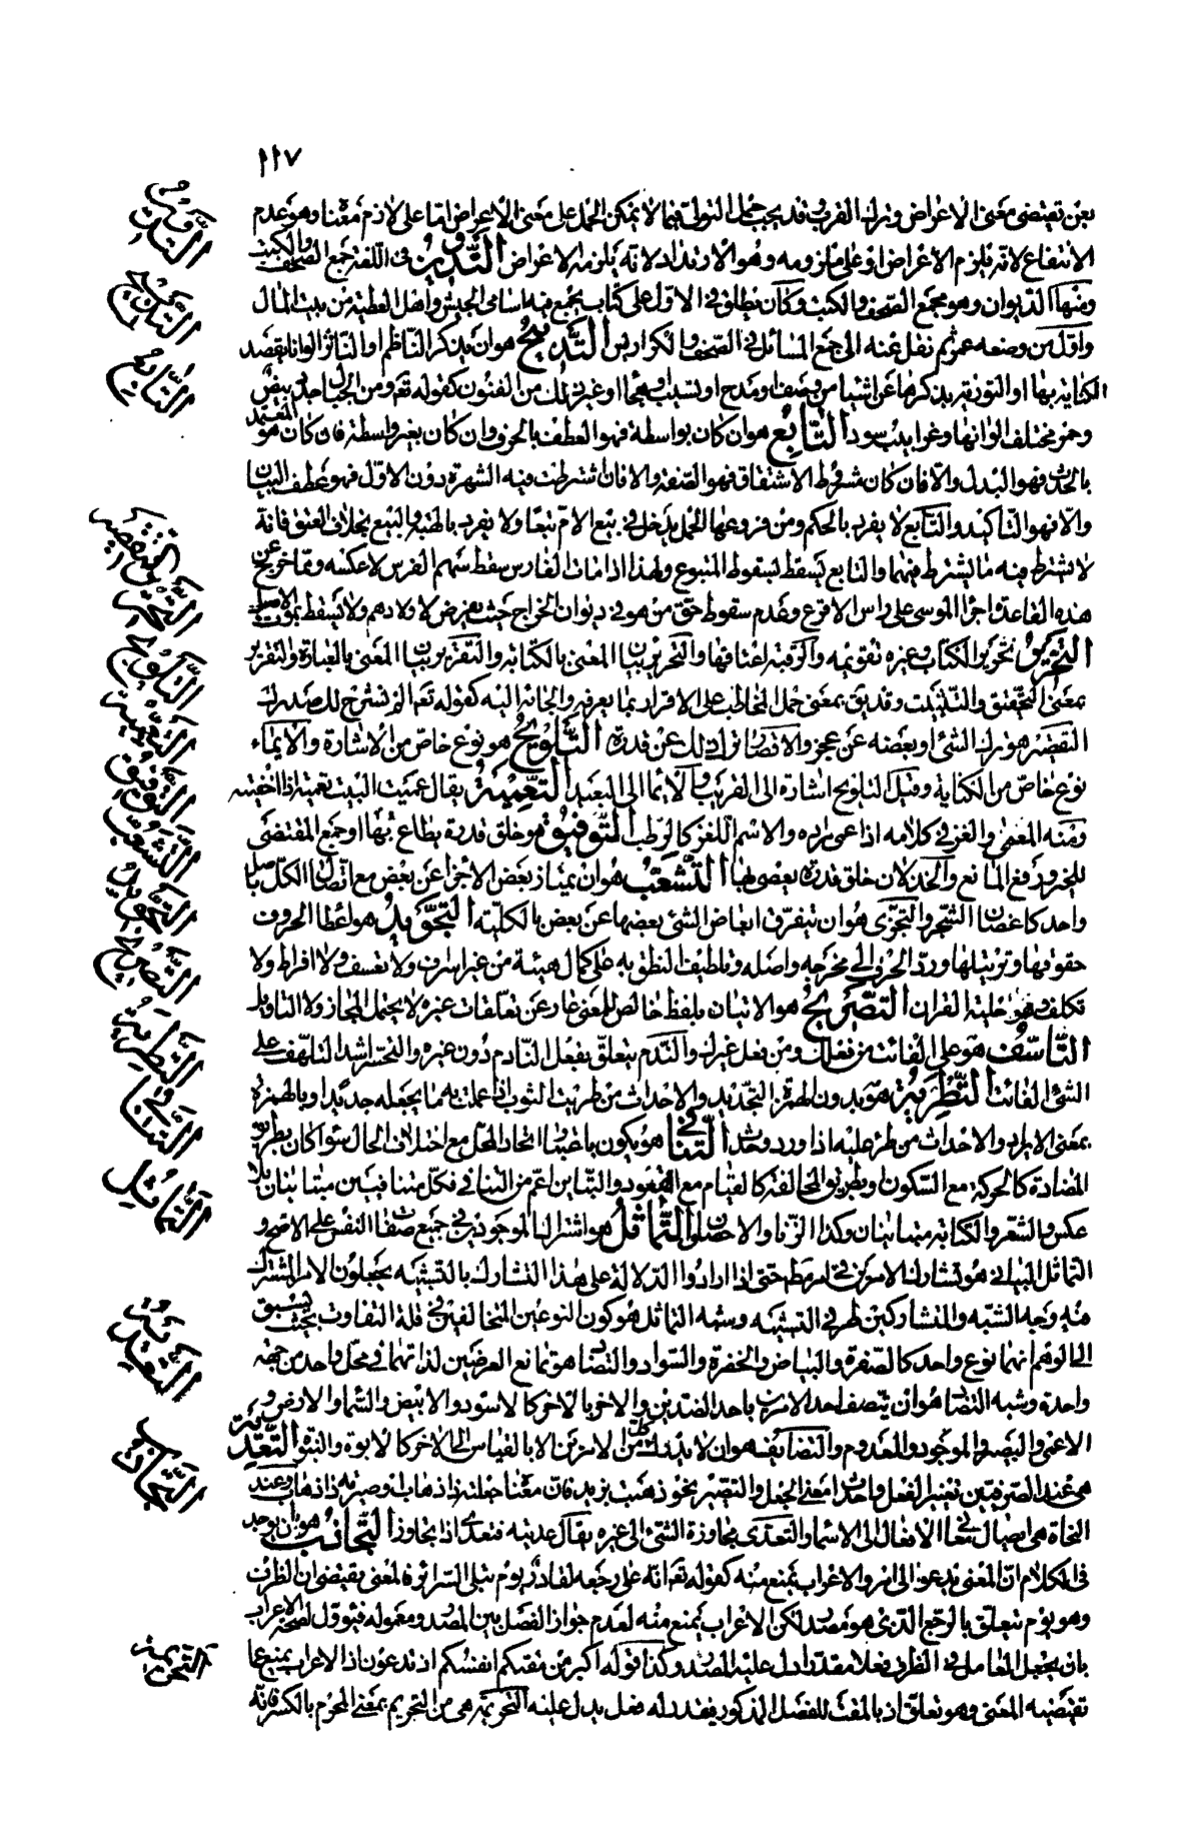 ١١٧
بعن تقتضى معنى الاعراض وترك القرب وقد يجب حمل التولى فيما لا يمكن الحمل على معنى الاعراض اما على لازم معناه وهو عدم
الانتفاع لانه يلزم الاعراض او على ملزومه وهو الارتداد لانه يلزمه الاعراض التدوين فى اللغة جمع الصحف والكتب
ومنها الديوان وهو مجمع الصحف والكتب وكان يطلق فى الاول على كتاب يجمع فيه اسامى الجيش واهل العطية من بيت المال
واول من وضعه عمر ثم نقل عنه الى جمع المسائل فى الصحف والكراريس التدبيج هو ان يذكر الناظم او الناثر الوانا يقصد
الكناية بها او التورية بذكرها عن اشياء من وصف او مدح او نسيب او هجاء او غير ذلك من الفنون كقوله تعه ومن الجبال جدد بيض
وحمر مختلف الوانها وغرابيب سود التابع هو ان كان بواسطة فهو العطف بالحرف وان كان بغير واسطة فان كان هو المعتمد
بالحديث فهو البدل والا فان كان مشروط الاشتقاق فهو الصفة والا فان اشترطت فيه الشهرة دون الاول فهو عطف البيان
والا فهو التاكيد والتابع لا يفرد بالحكم ومن فروعها الحمل يدخل فى بيع الام تبعا ولا يفرد بالهبة والبيع بخلاف العتق فانه
لا يشترط فيه ما يشترط فيهما والتابع يسقط بسقوط المتبوع ولهذا اذا مات الفارس سقط سهم الفرس لا عكسه ومما خرج عن
هذه القاعدة اجراء الموسى على راس الاقرع وعدم سقوط حق من هو فى ديوان الخراج حيث يفرض لاولادهم ولا يسقط بموت الاصل
التحرير تحرير الكتاب وغيره تقويمه والرقبة اعتاقها والتحرير بيان المعنى بالكتابة والتقرير بيان المعنى بالعبارة والتقرير
بمعنى التحقيق والتثبيت وقد يق بمعنى حمل المخاطب على الاقرار بما يعرفه والجائه اليه كقوله تعه الم نشرح لك صدرك
التقصير هو ترك الشئ او بعضه عن عجز والاقتصار ترك ذلك عن قدرة التلويح هو نوع خاص من الاشارة والايماء
نوع خاص من الكناية وقيل التلويح اشارة الى القريب والايماء الى البعيد التعمية يقال عميت البيت تعمية اذا اخفيته
ومنه المعمى والغز فى كلامه اذا عمى مراده والاسم اللغز كالرطب التوفيق هو خلق قدرة يطاع بها او جمع المقتضى
للخير ورفع المانع والخذلان خلق قدرة يعصى بها التشعب هو ان يمتاز بعض الاجزاء عن بعض مع اتصال الكل باصل
واحد كاغصان الشجر والتجزى هو ان يتفرق ابعاض الشئ بعضها عن بعض بالكلية التجويد هو اعطاء الحروف
حقوقها وترتيلها ورد الحرف الى مخرجه واصله وتلطيف النطق به على كمال هيئة من غير اسراف ولا تعسف ولا افراط ولا
تكلف وهو حلية القران التصريح هو الاتيان بلفظ خالص للمعنى عار عن تعلقات غيره لا يحتمل المجاز ولا التاويل
التأسف هو على الفائت من فعلك ومن فعل غيرك والندم يتعلق بفعل النادم دون غيره والتحسر اشد التلهف على
الشئ الفائت التطرية هو بدون الهمزة التجديد والاحداث من طريت الثوب اذا عملت به ما يجعله جديدا وبالهمزة
بمعنى الايراد والاحداث من طرء عليه اذا ورد وحدث التنافى هو يكون باعتبار اتحاد المحل مع اختلاف الحال سواء كان بطريق
المضادة كالحركة مع السكون او بطريق المخالفة كالقيام مع القعود والتباين اعم من التنافى فكل متنافيين متباينان بلا
عكس والشعر والكتابة متباينان وكذا الزنا والاحصان التماثل هو اشتراك الموجودين فى جميع صفات النفس على الاصح و
التماثل البيانى هو تشارك الامرين فى امر مطلقا حتى اذا ارادوا الدلالة على هذا التشارك بالتشبيه يجعلون الامر المشترك
فيه وجه الشبه والمتشاركين طرفى التشبيه وشبه التماثل هو كون النوعين المتخالفين فى قلة التفاوت بحيث يسبق
الى الوهم انهما نوع واحد كالصفرة والبياض والخضرة والسواد والتضاد هو تمانع العرضين لذاتهما فى محل واحد من جهة
واحدة وشبه التضاد هو ان يتصف احد الامرين باحد الضدين والاخر بالاخر كالاسود والابيض والسماء والارض و
الاعمى والبصير والموجود والمعدوم والتضايف هو ان لا يدرك كل من الامرين الا بالقياس الى الاخر كالابوة والبنوة التعدية
هى عند الصرفيين تغيير الفعل واحداث معنى الجعل والتصيير نحو ذهبت بزيد فان معناه جعلته ذا ذهاب او صيرته ذا ذهاب وعند
النحاة هى ايصال معانى الافعال الى الاسماء والتعدى مجاوزة الشئ الى غيره يقال عديته فتعدى اذا تجاوز التجاذب هو ان يوجد
فى الكلام ان المعنى يدعو الى امر والاعراب يمنع منه كقوله تعه انه على رجعه لقادر يوم تبلى السرائر فالمعنى يقتضى ان الظرف
وهو يوم يتعلق بالرجع الذى هو مصدر لكن الاعراب يمنع منه لعدم جواز الفصل بين المصدر ومعموله فيؤول لصحة الاعراب
بان يجعل العامل فى الظرف فعلا مقدرا دل عليه المصدر وكذا قوله اكبر من مقتكم انفسكم اذ تدعون اذ الاعراب يمنع عما
تقتضيه المعنى وهو تعلق اذ بالمقت للفصل المذكور فيقدر له فعل يدل عليه التحريمة هى من التحريم بمعنى المحرم بالكسر فانه
التدوين
التدبيج
التابع
التقصير
التحرير
التلويح
التعمية
التوفيق
التشعب
التجويد
التصريح
التطرية
التنافى
التماثل
التعدية
التجاذب
التحريمة